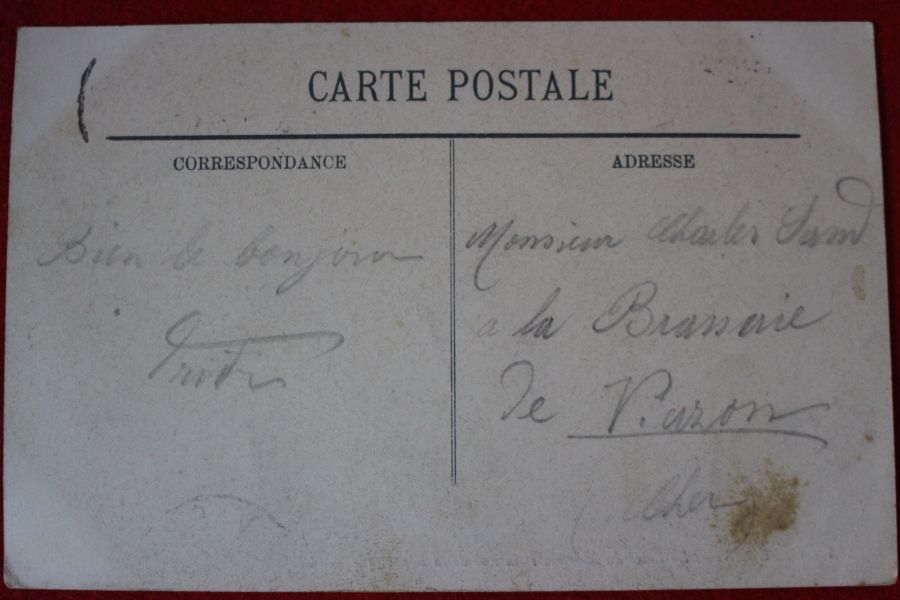 CARTE POSTALE
CORRESPONDANCE
ADRESSE
Bien le bonjour
Monsieur Charles Sand
a la Brasserie
De Vierzon
(Cher)